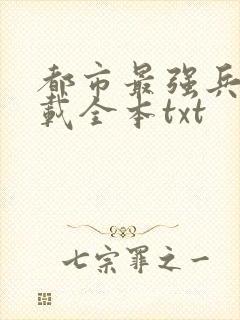 都市最强兵
载全本txt
七宗罪之一